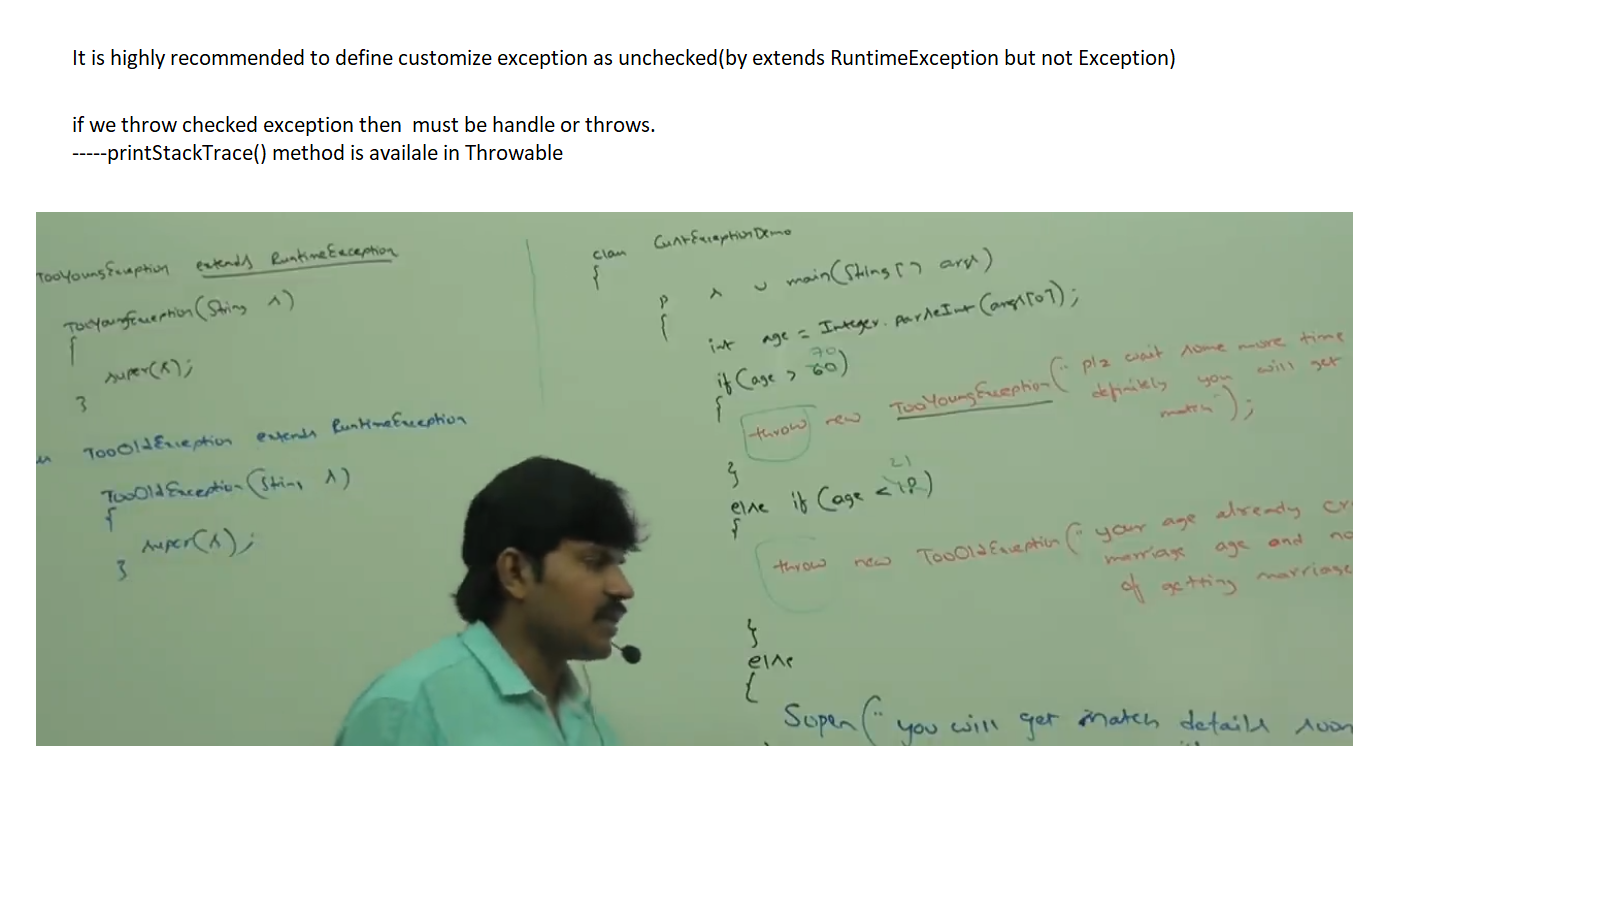 It is highly recommended to define customize exception as unchecked(by extends RuntimeException but not Exception)
if we throw checked exception then  must be handle or throws.
-----printStackTrace() method is availale in Throwable
TooYoungException extends RuntimeException
TooYoungException(String s)
{
super(s);
}
TooOldException extends RuntimeException
TooOldException(String s)
{
super(s);
}
class CustExceptionDemo
{
p s v main(String[] args)
{
int age = Integer.parseInt(args[0]);
70
if(age > 60)
{
throw new TooYoungException("plz wait some more time
definitely you will get
match");
}
21
else if(age < 18)
{
throw new TooOldException("your age already cr
marriage age and no
of getting marriage
}
else
{
Sopen("you will get match details soon